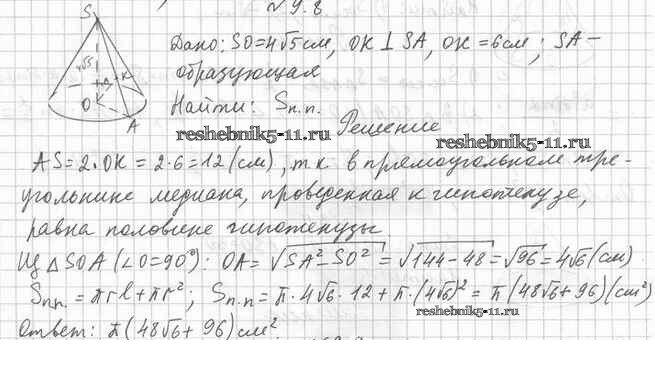 № 9.8
S
4√5
6
K
O
A
Дано: SO=4√5 см, OK ⊥ SA, OK = 6 см; SA –
образующая
Найти: Sп.п.
reshebnik5-11.ru
Решение
reshebnik5-11.ru
AS = 2·OK = 2·6 = 12 (см), т.к. в прямоугольном тре-
угольнике медиана, проведенная к гипотенузе,
равна половине гипотенузы
Из △ SOA (∠O=90°): OA = √SA²–SO² = √144–48 = √96 = 4√6 (см).
Sп.п. = πrl + πr²; Sп.п. = π·4√6·12 + π·(4√6)² = π(48√6+96)(см²)
reshebnik5-11.ru
Ответ: π(48√6 + 96) см²